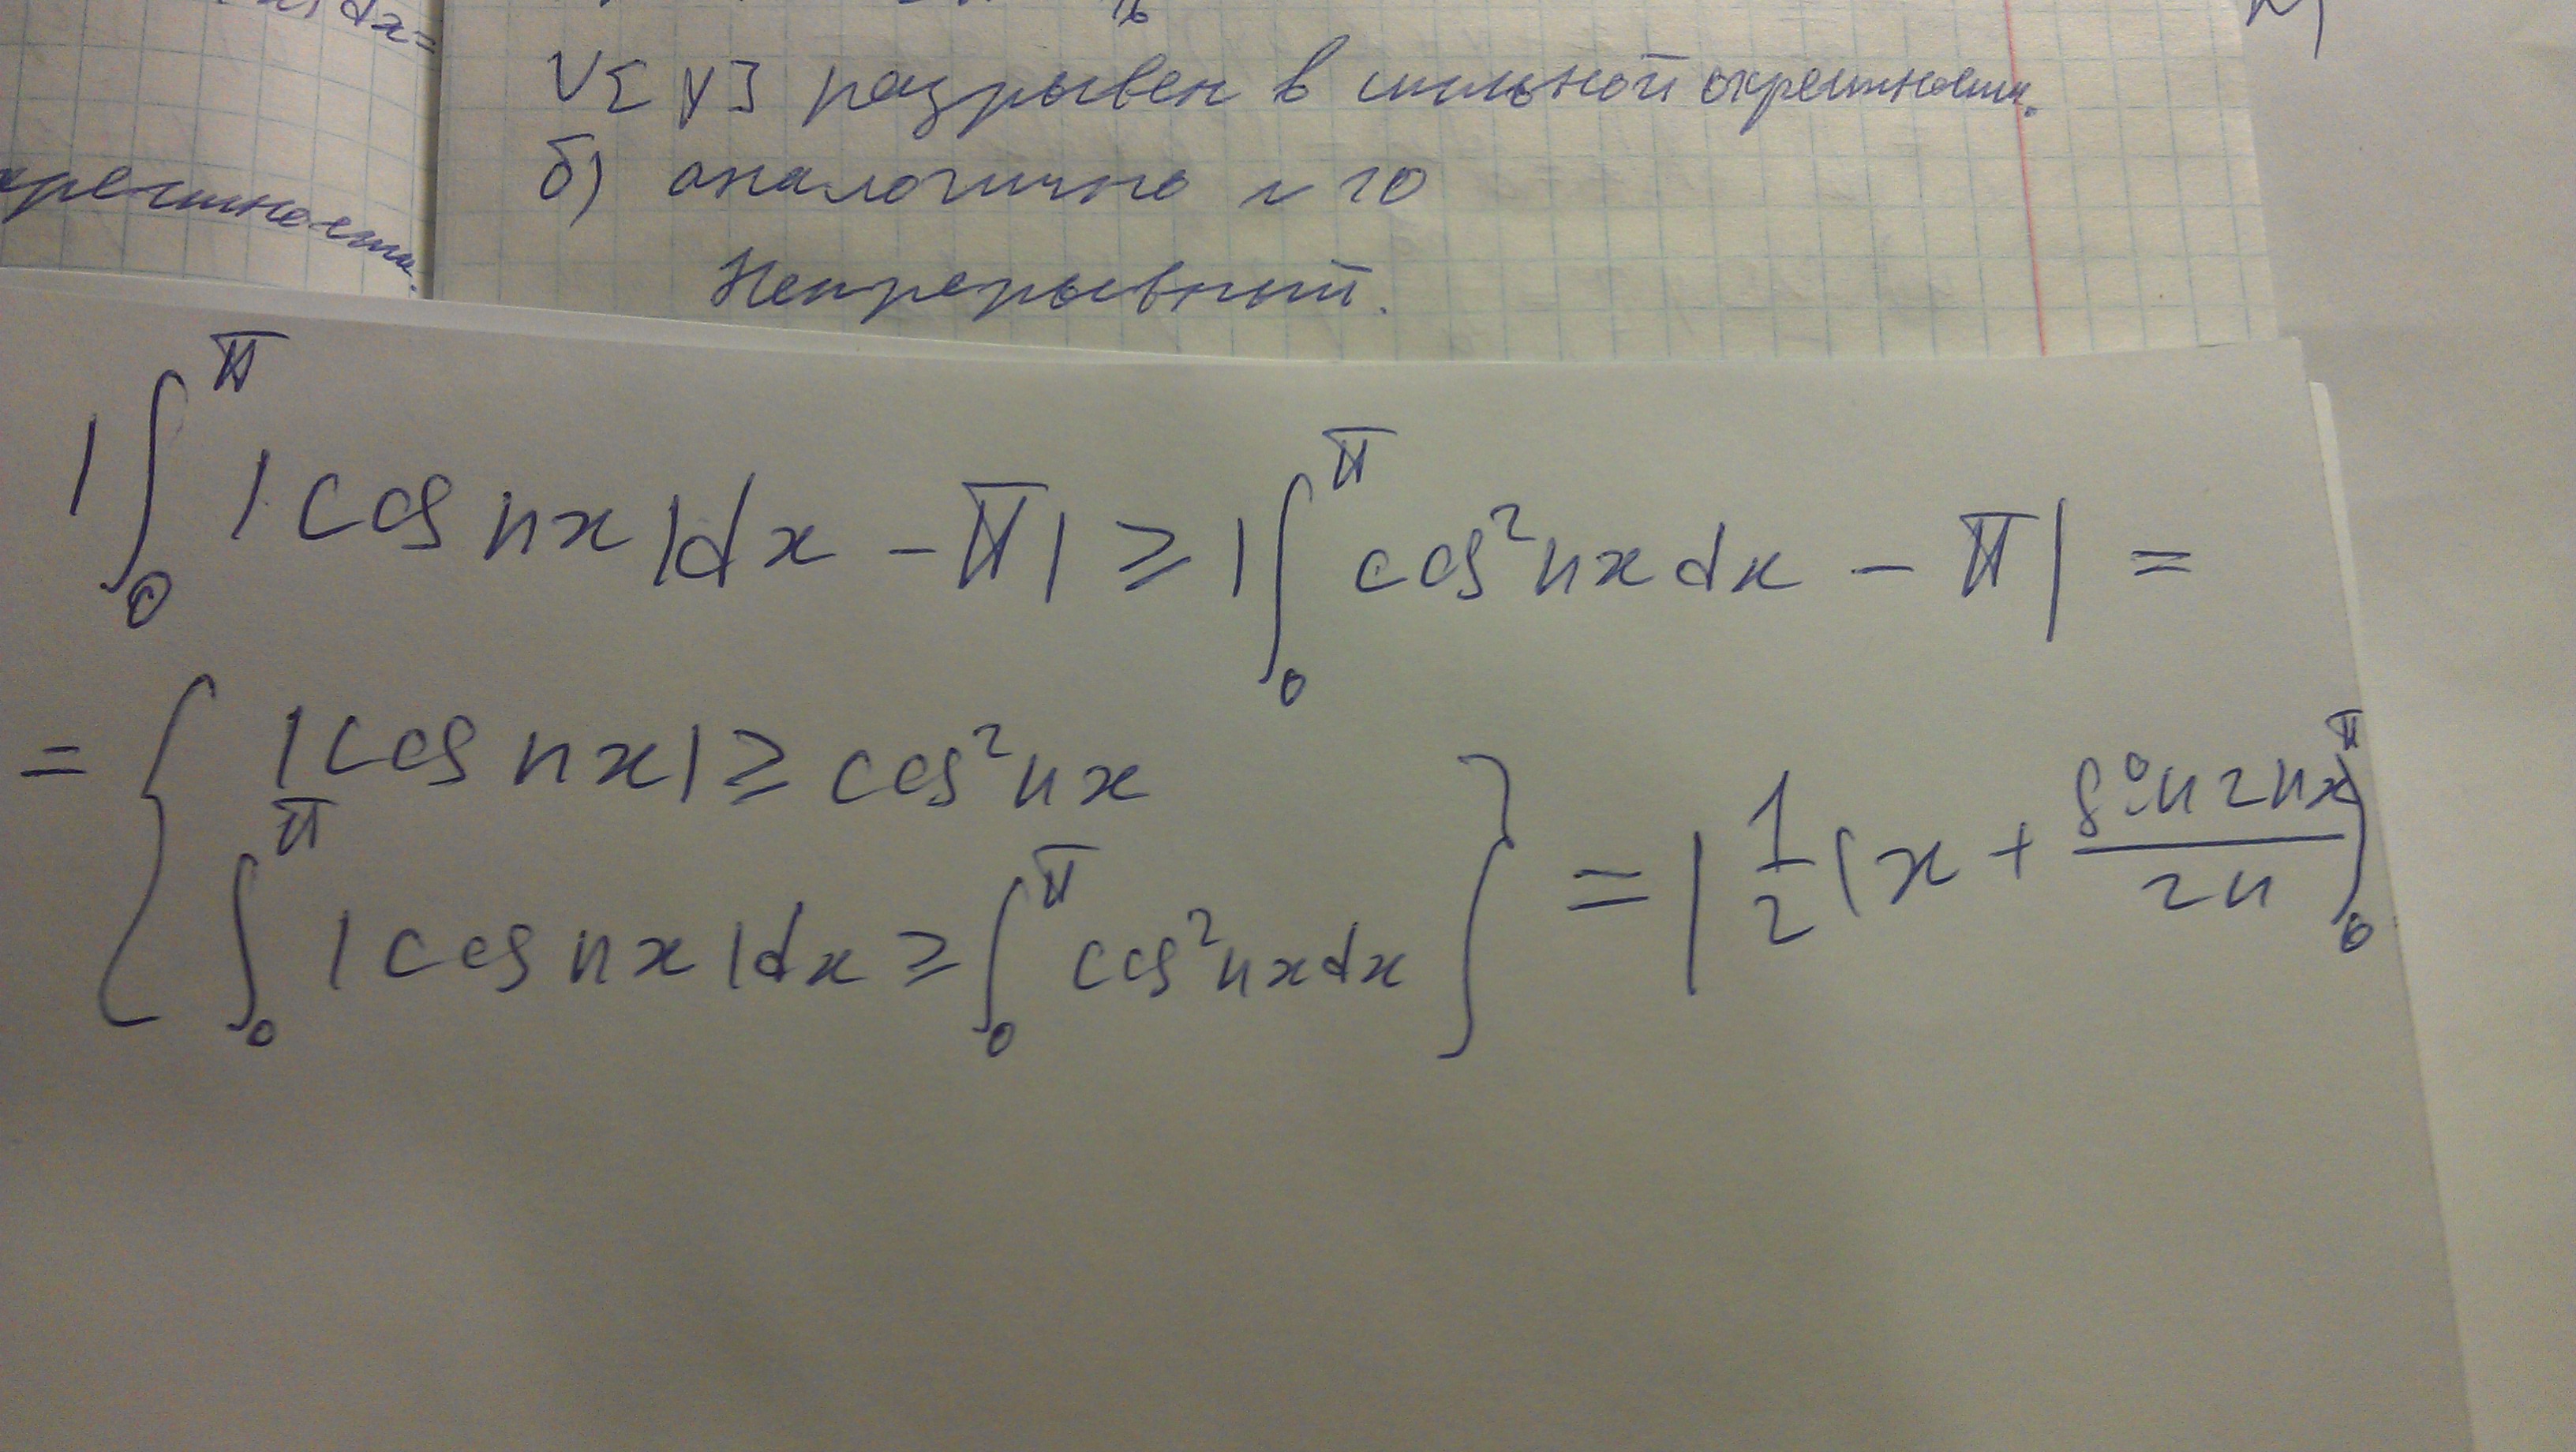 dx=
V[y] разрывен в сильной окрестности.
б) аналогично N 10
окрестности.
Непрерывный.
|∫₀^π |cos nx|dx - π| ≥ |∫₀^π cos²nxdx - π| =
= { |cos nx| ≥ cos²nx
∫₀^π |cos nx|dx ≥ ∫₀^π cos²nxdx } = |1/2 (x + sin2nx/2n)₀^π